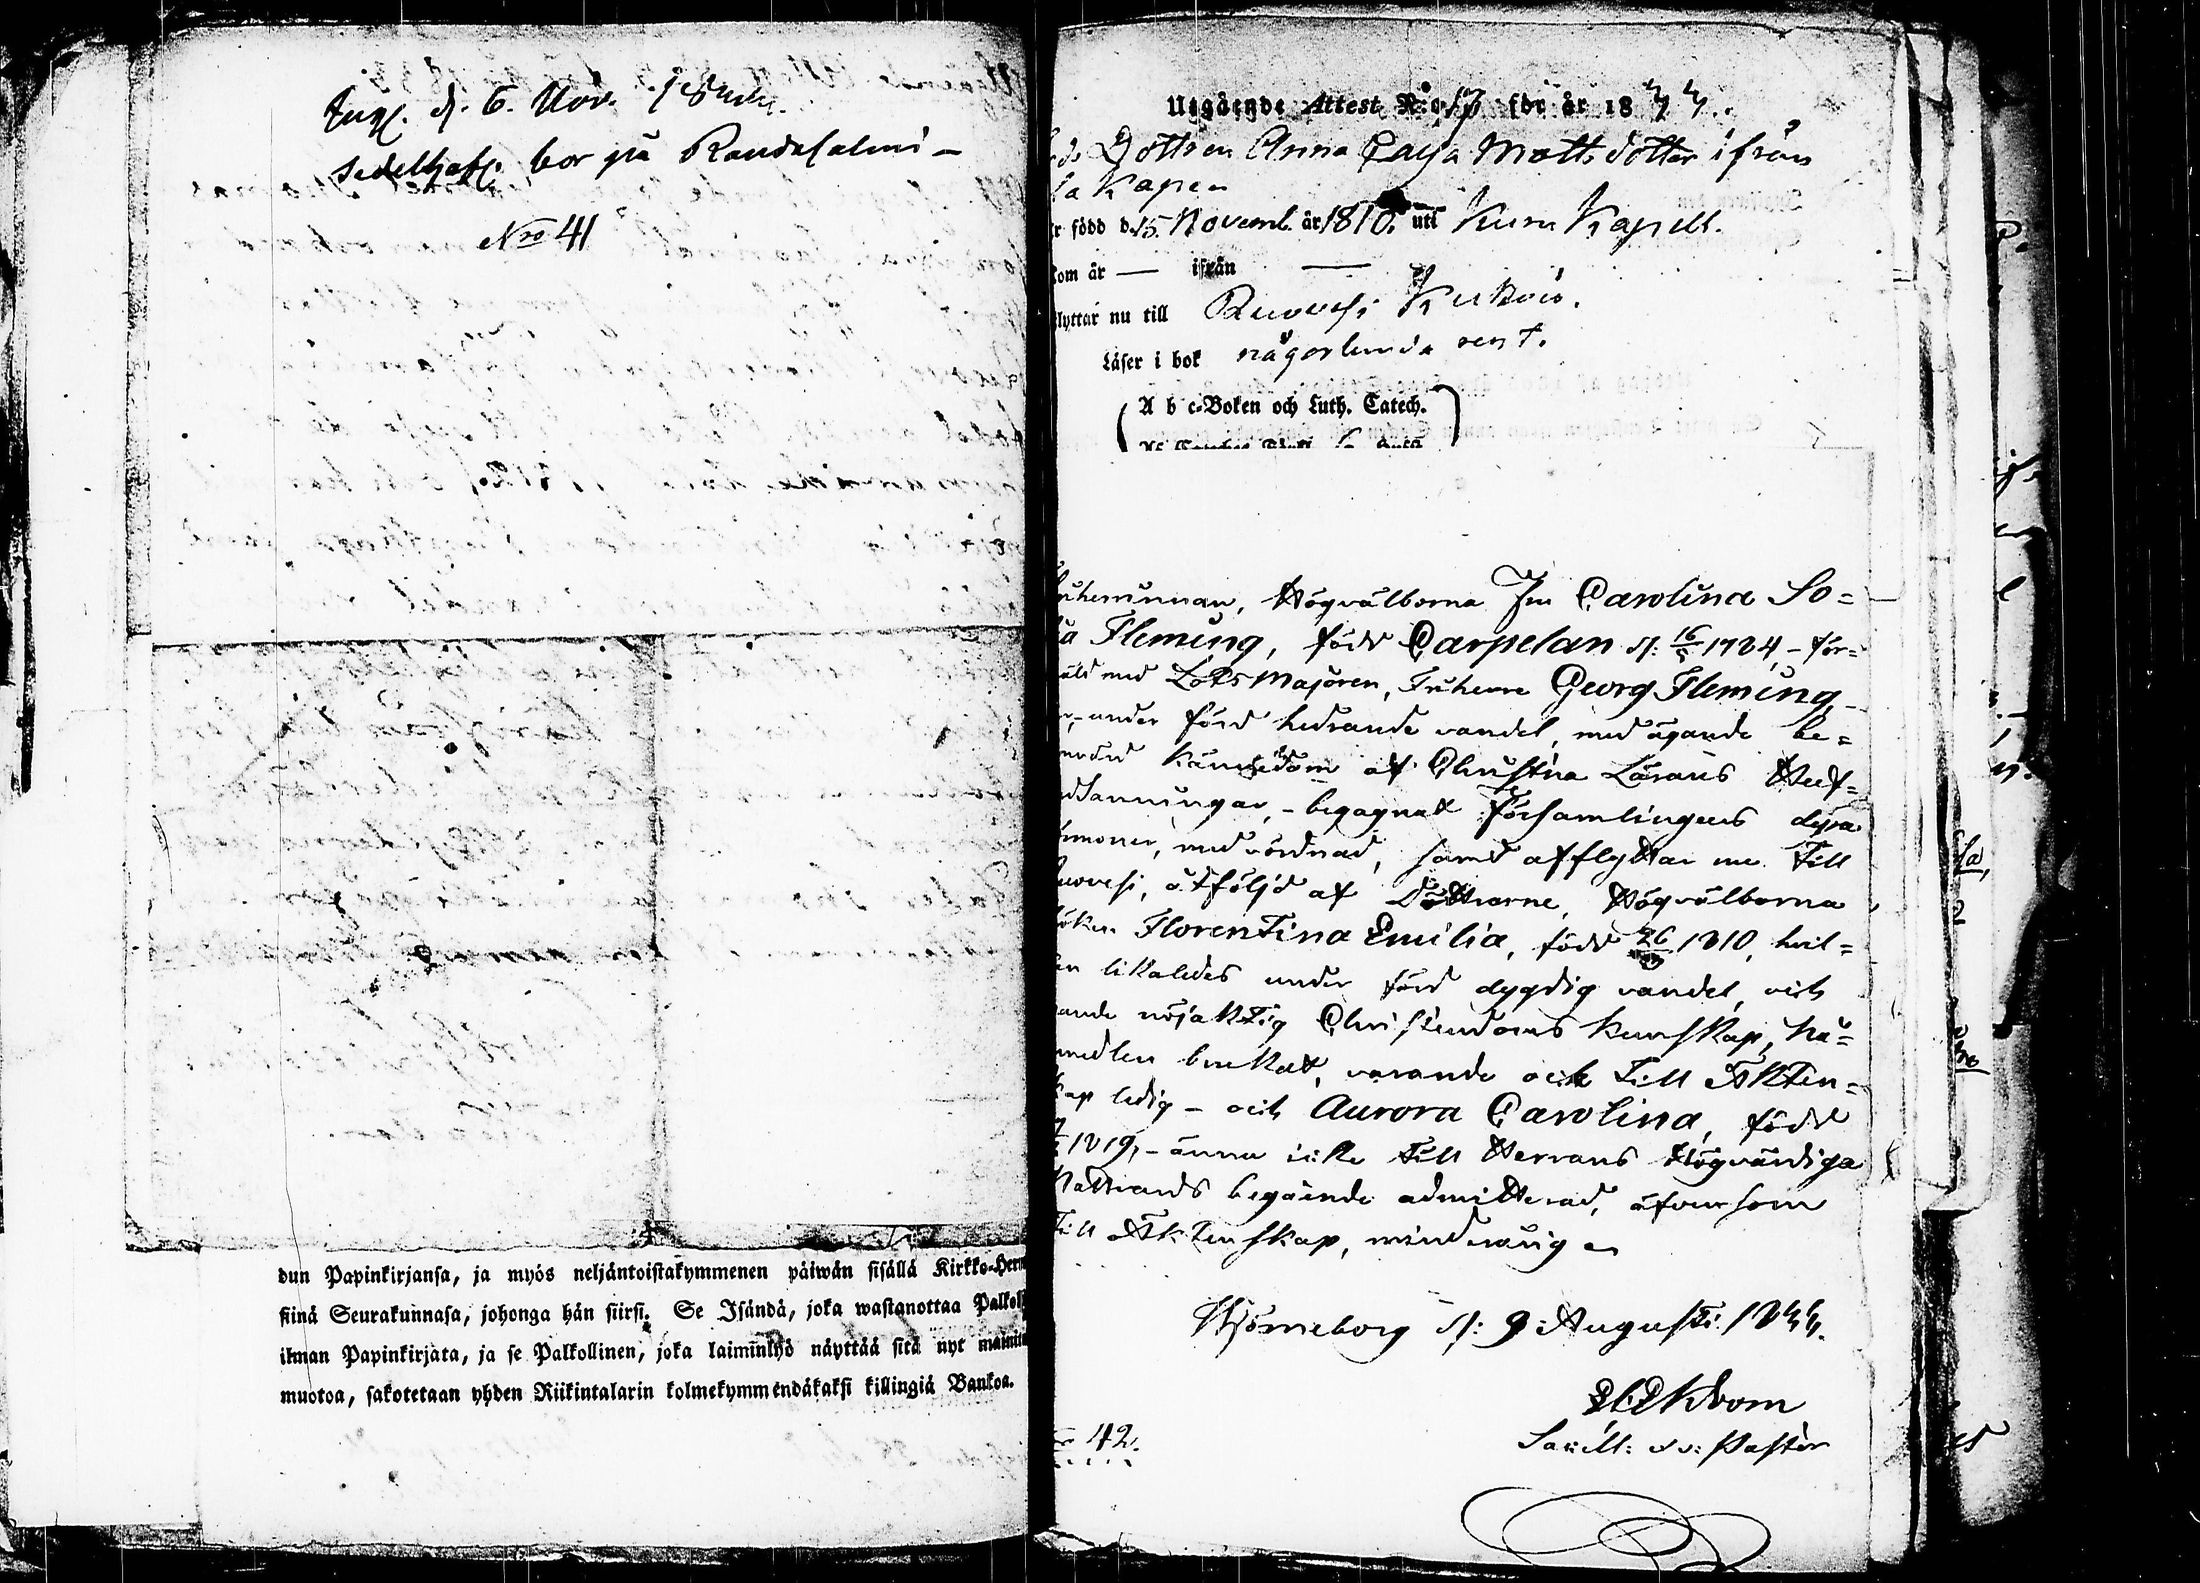 Ingl. d. 6. Nov.
sedelhafv. bor på Randasalmi –
No 41
dun Papinkirjansa, ja myös neljäntoistakymmenen päiwän sisällä Kirkko-Herr
siinä Seurakunnasa, johonga hän siirsi. Se Isändä, joka wastanottaa Palkol
ilman Papinkirjata, ja se Palkollinen, joka laiminlyö näyttää sitä nyt mainit
muotoa, sakotetaan yhden Riikintalarin kolmekymmendäkaksi killingiä Bankoa.
Utgående Attest N:o 13 för år 1844.
Dottren Anna Caisa Mattsdotter ifrån
Kapen
r född d. 15. Novemb. år 1810. uti Kuru Kapell.
kom år — ifrån —
flyttar nu till Ruovesi Kurkois.
Läser i bok någorlunda rent.
A b c-Boken och Luth. Catech.
riherinnan, Högvälborna Fru Carolina So=
ia Fleming, född Carpelan d: 16/5 1784, – för=
äld med Lots Majoren, Friherre Georg Fleming, –
r, under förd hedrande vandel, med ägande be=
römd kännedom af Christna Lärans Huf=
udsanningar, – begagnat Församlingens dyra
rmoner, med vördnad, samt afflyttar nu till
uovesi, åtföljd af Döttrarne, Högvälborna
öken Florentina Emilia, född 26 1810, hvil=
en likaledes under förd dygdig vandel, och
ande nöjaktig Christendoms kunskap, Nå=
medlen brukat, varande ock till Äkten=
kap ledig – och Aurora Carolina, född
1819, – ännu icke till Herrans Högvärdiga
Nattvards begående admitterad, äfvensom
till Äktenskap, minderårig
Björneborg d: 9 Augusti 1844.
Sacell: v. Pastor
r 42.